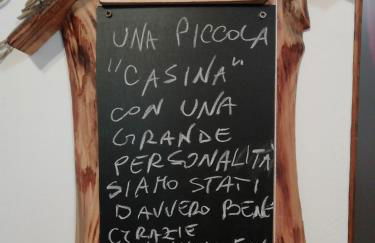 UNA PICCOLA
"CASINA"
CON UNA
GRANDE
PERSONALITÀ
SIAMO STATI
DAVVERO BENE
GRAZIE